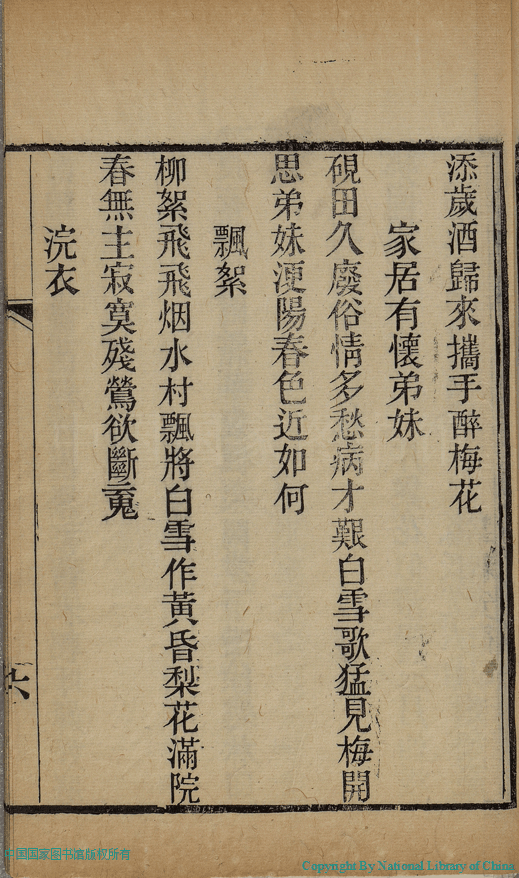 添歲酒歸來攜手醉梅花
家居有懷弟妹
硯田久廢俗情多愁病才艱白雪歌猛見梅開
思弟妹浭陽春色近如何
飄絮
柳絮飛飛烟水村飄將白雪作黃昏梨花滿院
春無主寂寞殘鶯欲斷䰟
浣衣
中国国家图书馆版权所有
Copyright By National Library of China